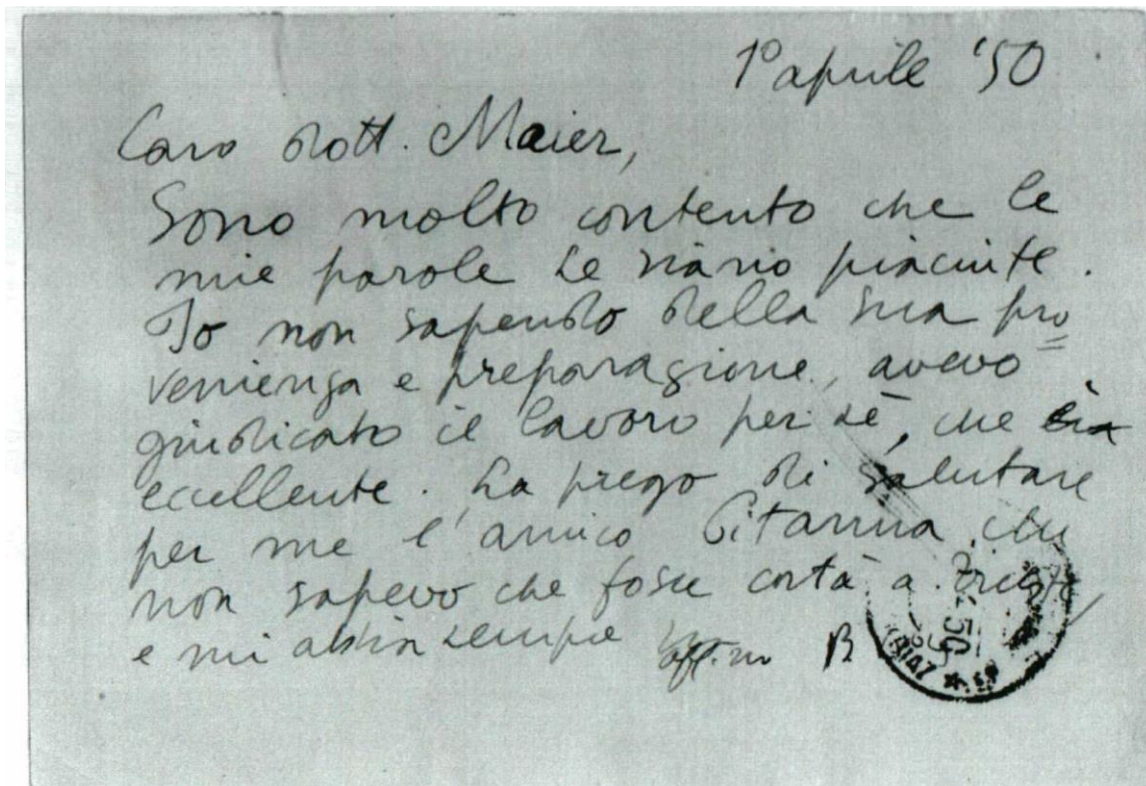 1º aprile '50
Caro dott. Maier,
Sono molto contento che le
mie parole le siano piaciute.
Io non sapendo della sua pro
venienza e preparazione, avevo
giudicato il lavoro per sé, che
eccellente. La prego di salutare
per me l'amico Pitanna, che
non sapevo che fosse costà a Trieste,
e mi abbia sempre aff.mo B